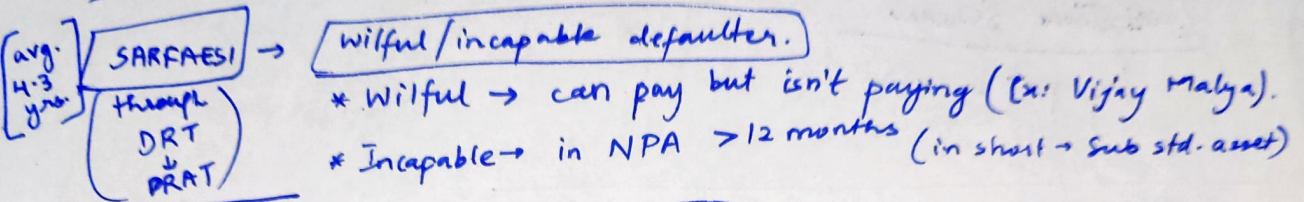 [avg. 4.3 yrs.] SARFAESI → Wilful/incapable defaulter.
(through DRT ↓ DRAT)
* Wilful → can pay but isn't paying (Ex: Vijay Malya).
* Incapable → in NPA >12 months (in short → Sub std. asset)